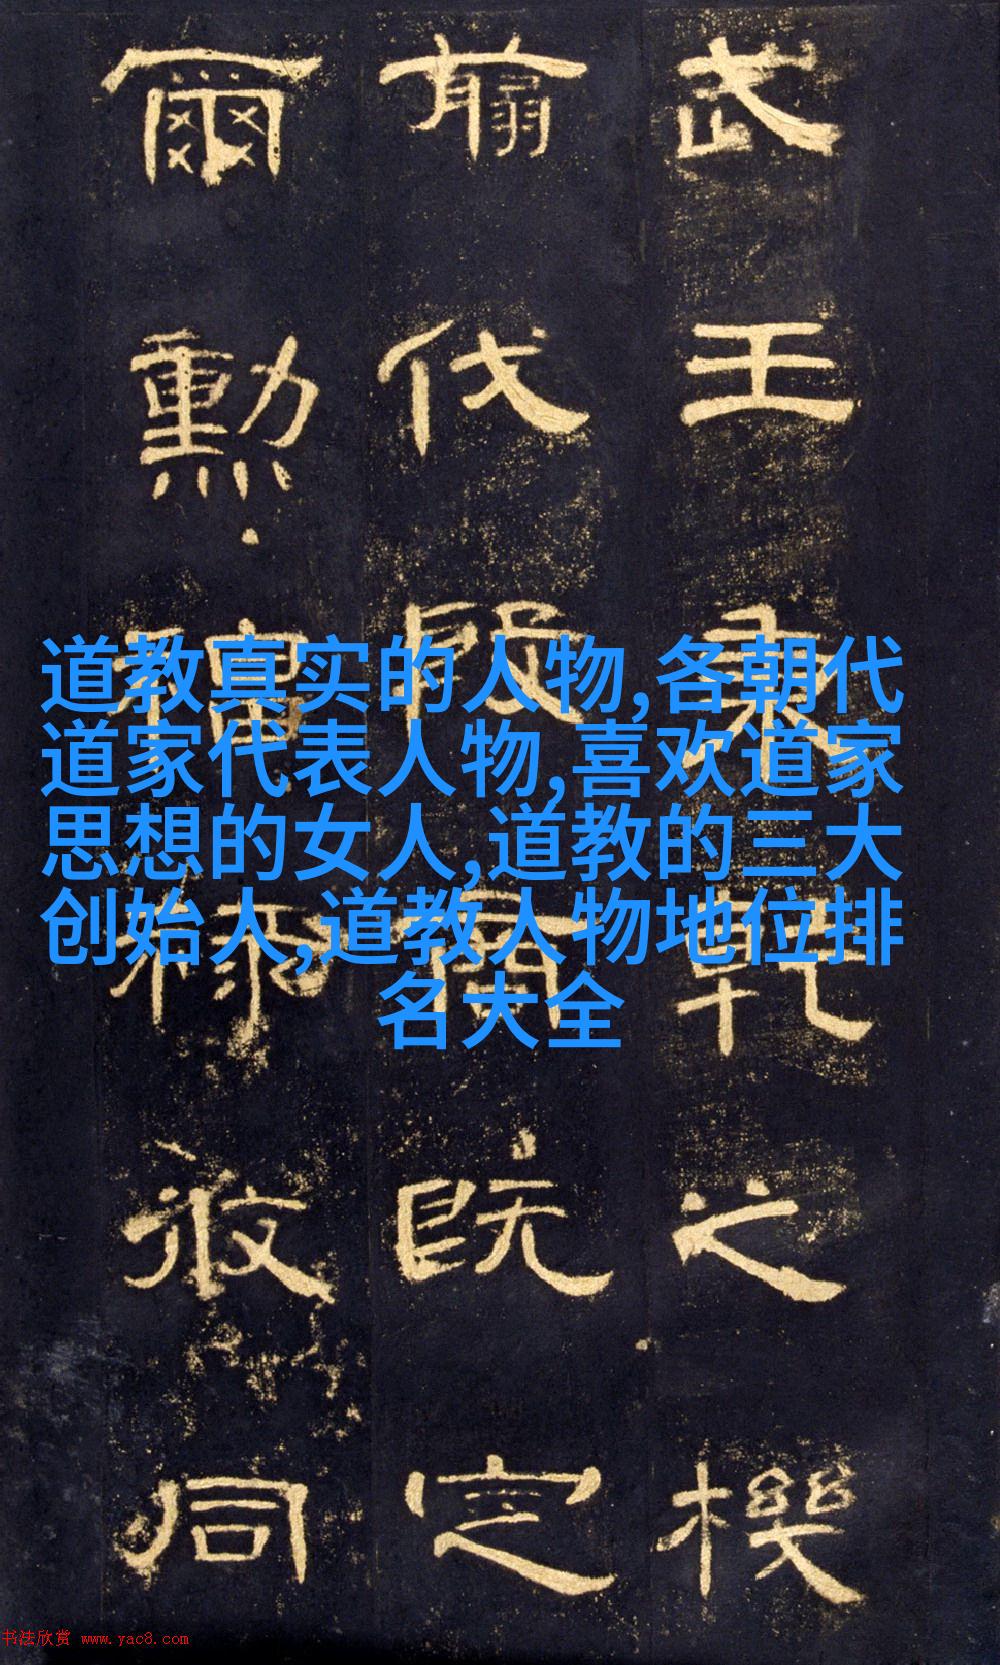 武王秉乾之機
翦伐殷商既定
爾勳福祿攸同
道教真实的人物,各朝代
道家代表人物,喜欢道家
思想的女人,道教的三大
创始人,道教人物地位排
名大全
书法欣赏 www.yac8.com